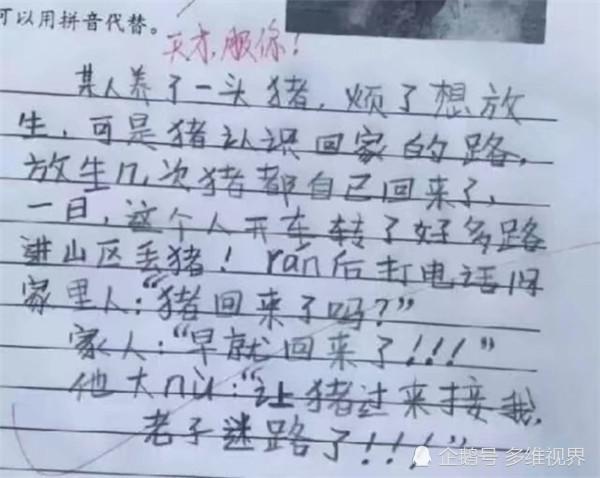 可以用拼音代替。
天才,服你!
某人养了一头猪,烦了想放
生,可是猪认识回家的路,
放生几次猪都自己回来了,
一日,这个人开车转了好多路
进山区丢猪!rán后打电话问
家里人:“猪回来了吗?”
家人:“早就回来了!!!”
他大nù:“让猪过来接我,
老子迷路了!!!”
企鹅号 多维视界